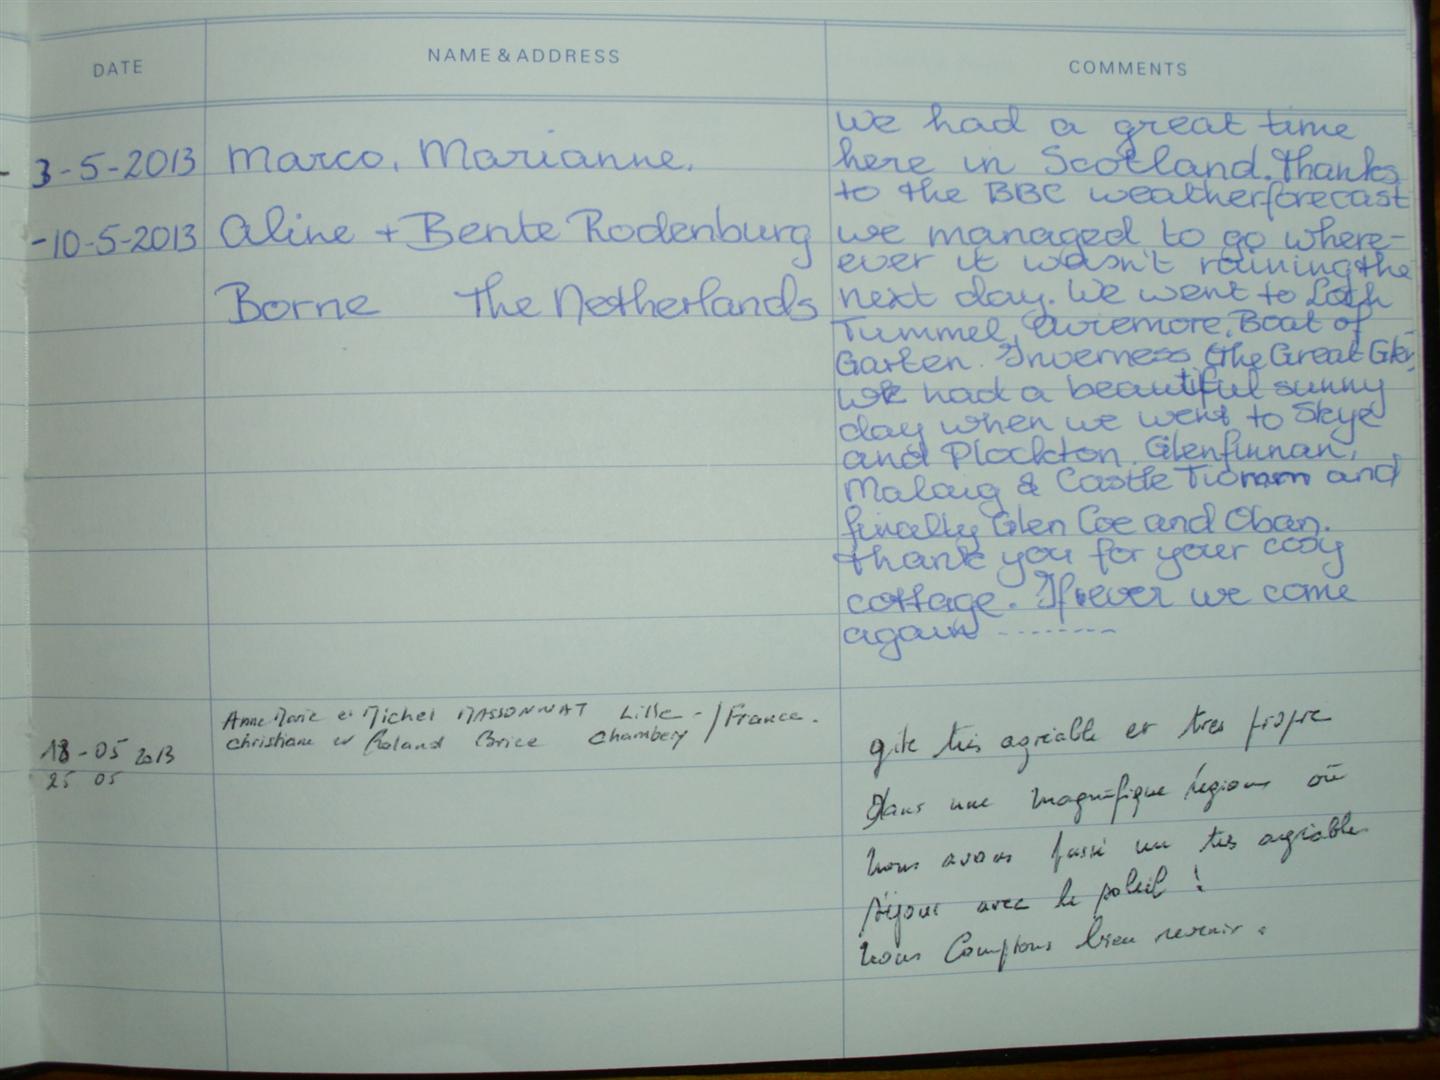 DATE
NAME & ADDRESS
COMMENTS
3-5-2013
-10-5-2013
Marco, Marianne,
Aline + Bente Rodenburg
Borne The Netherlands
We had a great time
here in Scotland. Thanks
to the BBC weatherforecast
we managed to go where-
ever it wasn't raining the
next day. We went to Loch
Tummel, Aviemore, Boat of
Garten. Inverness, the Great Glen,
We had a beautiful sunny
day when we went to Skye
and Plockton. Glenfinnan,
Malaig & Castle Tioram and
finally Glen Coe and Oban.
thank you for your cosy
cottage. If ever we come
again --------
18-05 2013
25 05
Anne Marie et Michel MASSONNAT Lille - / France.
Christiane et Roland Brice Chambery
gite très agréable et très propre
Dans une magnifique région où
nous avons passé un très agréable
séjour avec le soleil !
nous Comptons bien revenir.